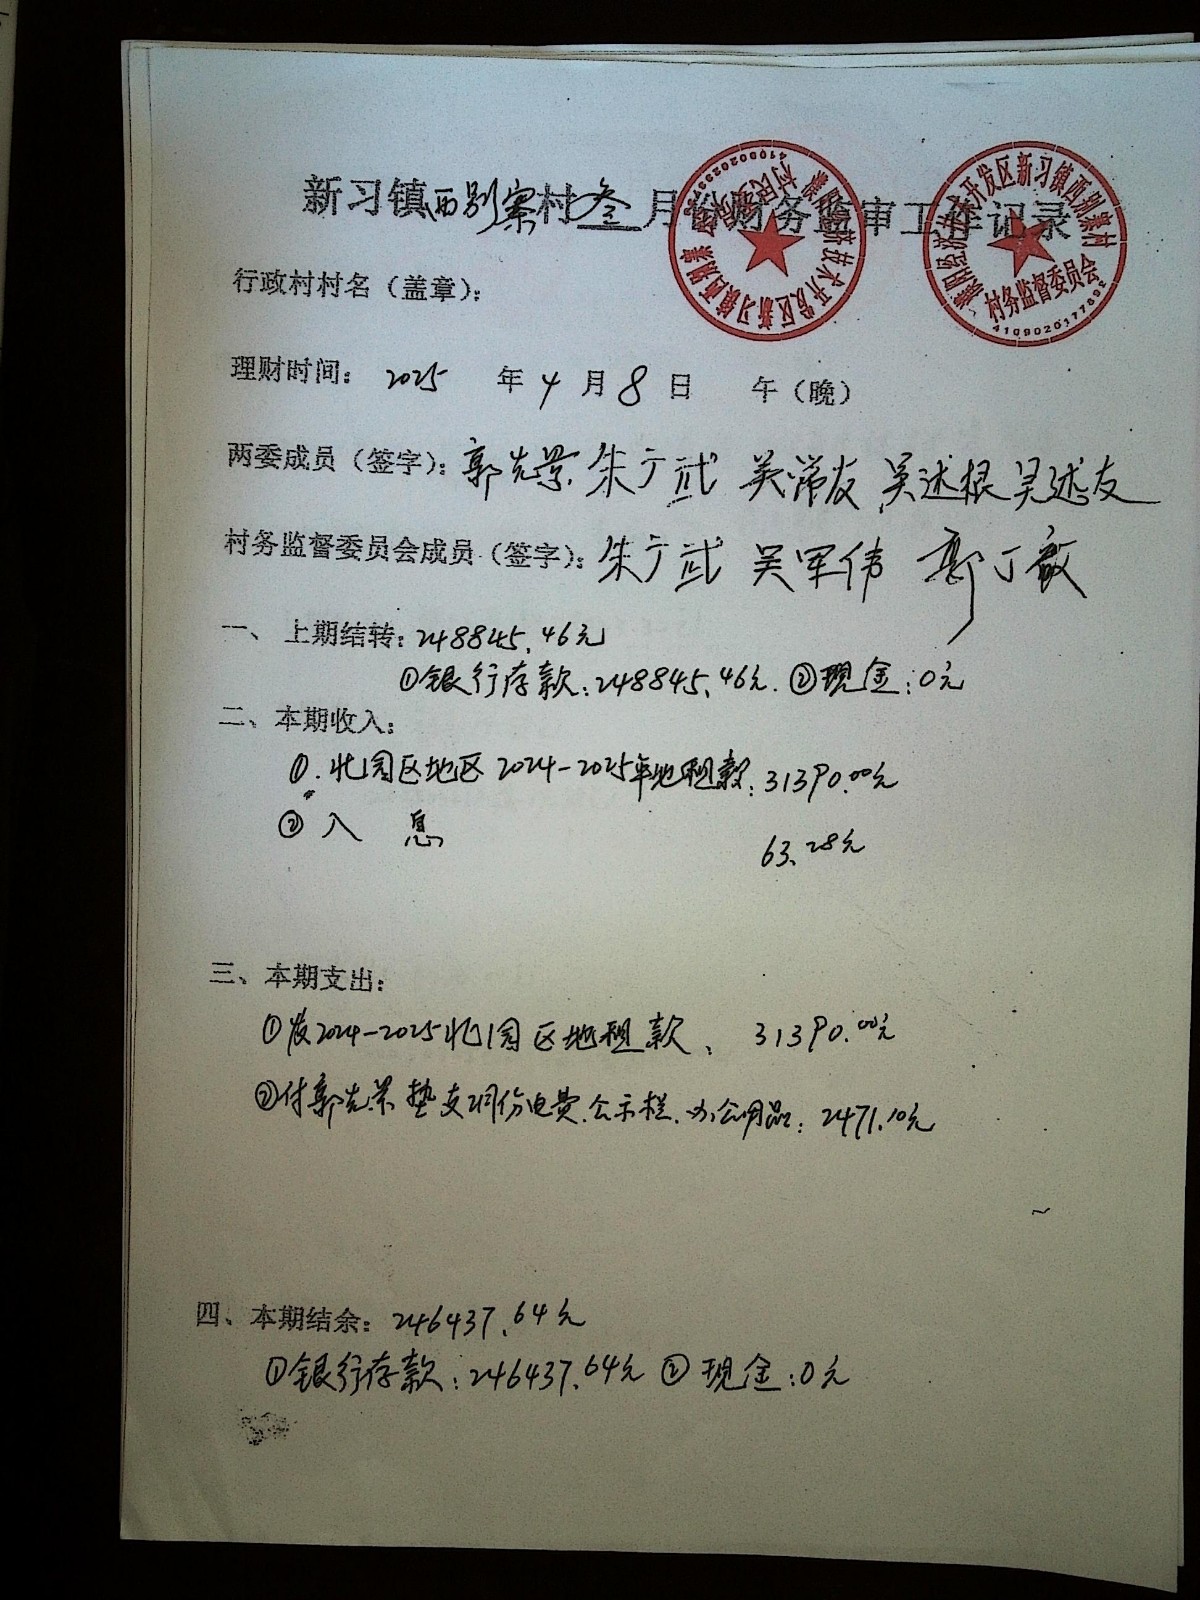 新习镇西别寨村叁月份财务监审工作记录
行政村村名（盖章）：
理财时间： 2025 年 4 月 8 日 午（晚）
两委成员（签字）：郭克景 朱广武 吴常友 吴述根 吴述友
村务监督委员会成员（签字）：朱广武 吴军伟 郭丁敏
一、上期结转：248845.46元
①银行存款：248845.46元. ②现金：0元
二、本期收入：
①. 北园区地区2024-2025年地租款：31390.00元
② 入 息 63.28元
三、本期支出：
①发2024-2025北园区地租款、 31390.00元
②付郭克景垫支3月份电费.公示栏.办公用品：2471.10元
四、本期结余：246437.64元
①银行存款：246437.64元 ②现金：0元
村务监督委员会
4109020177692